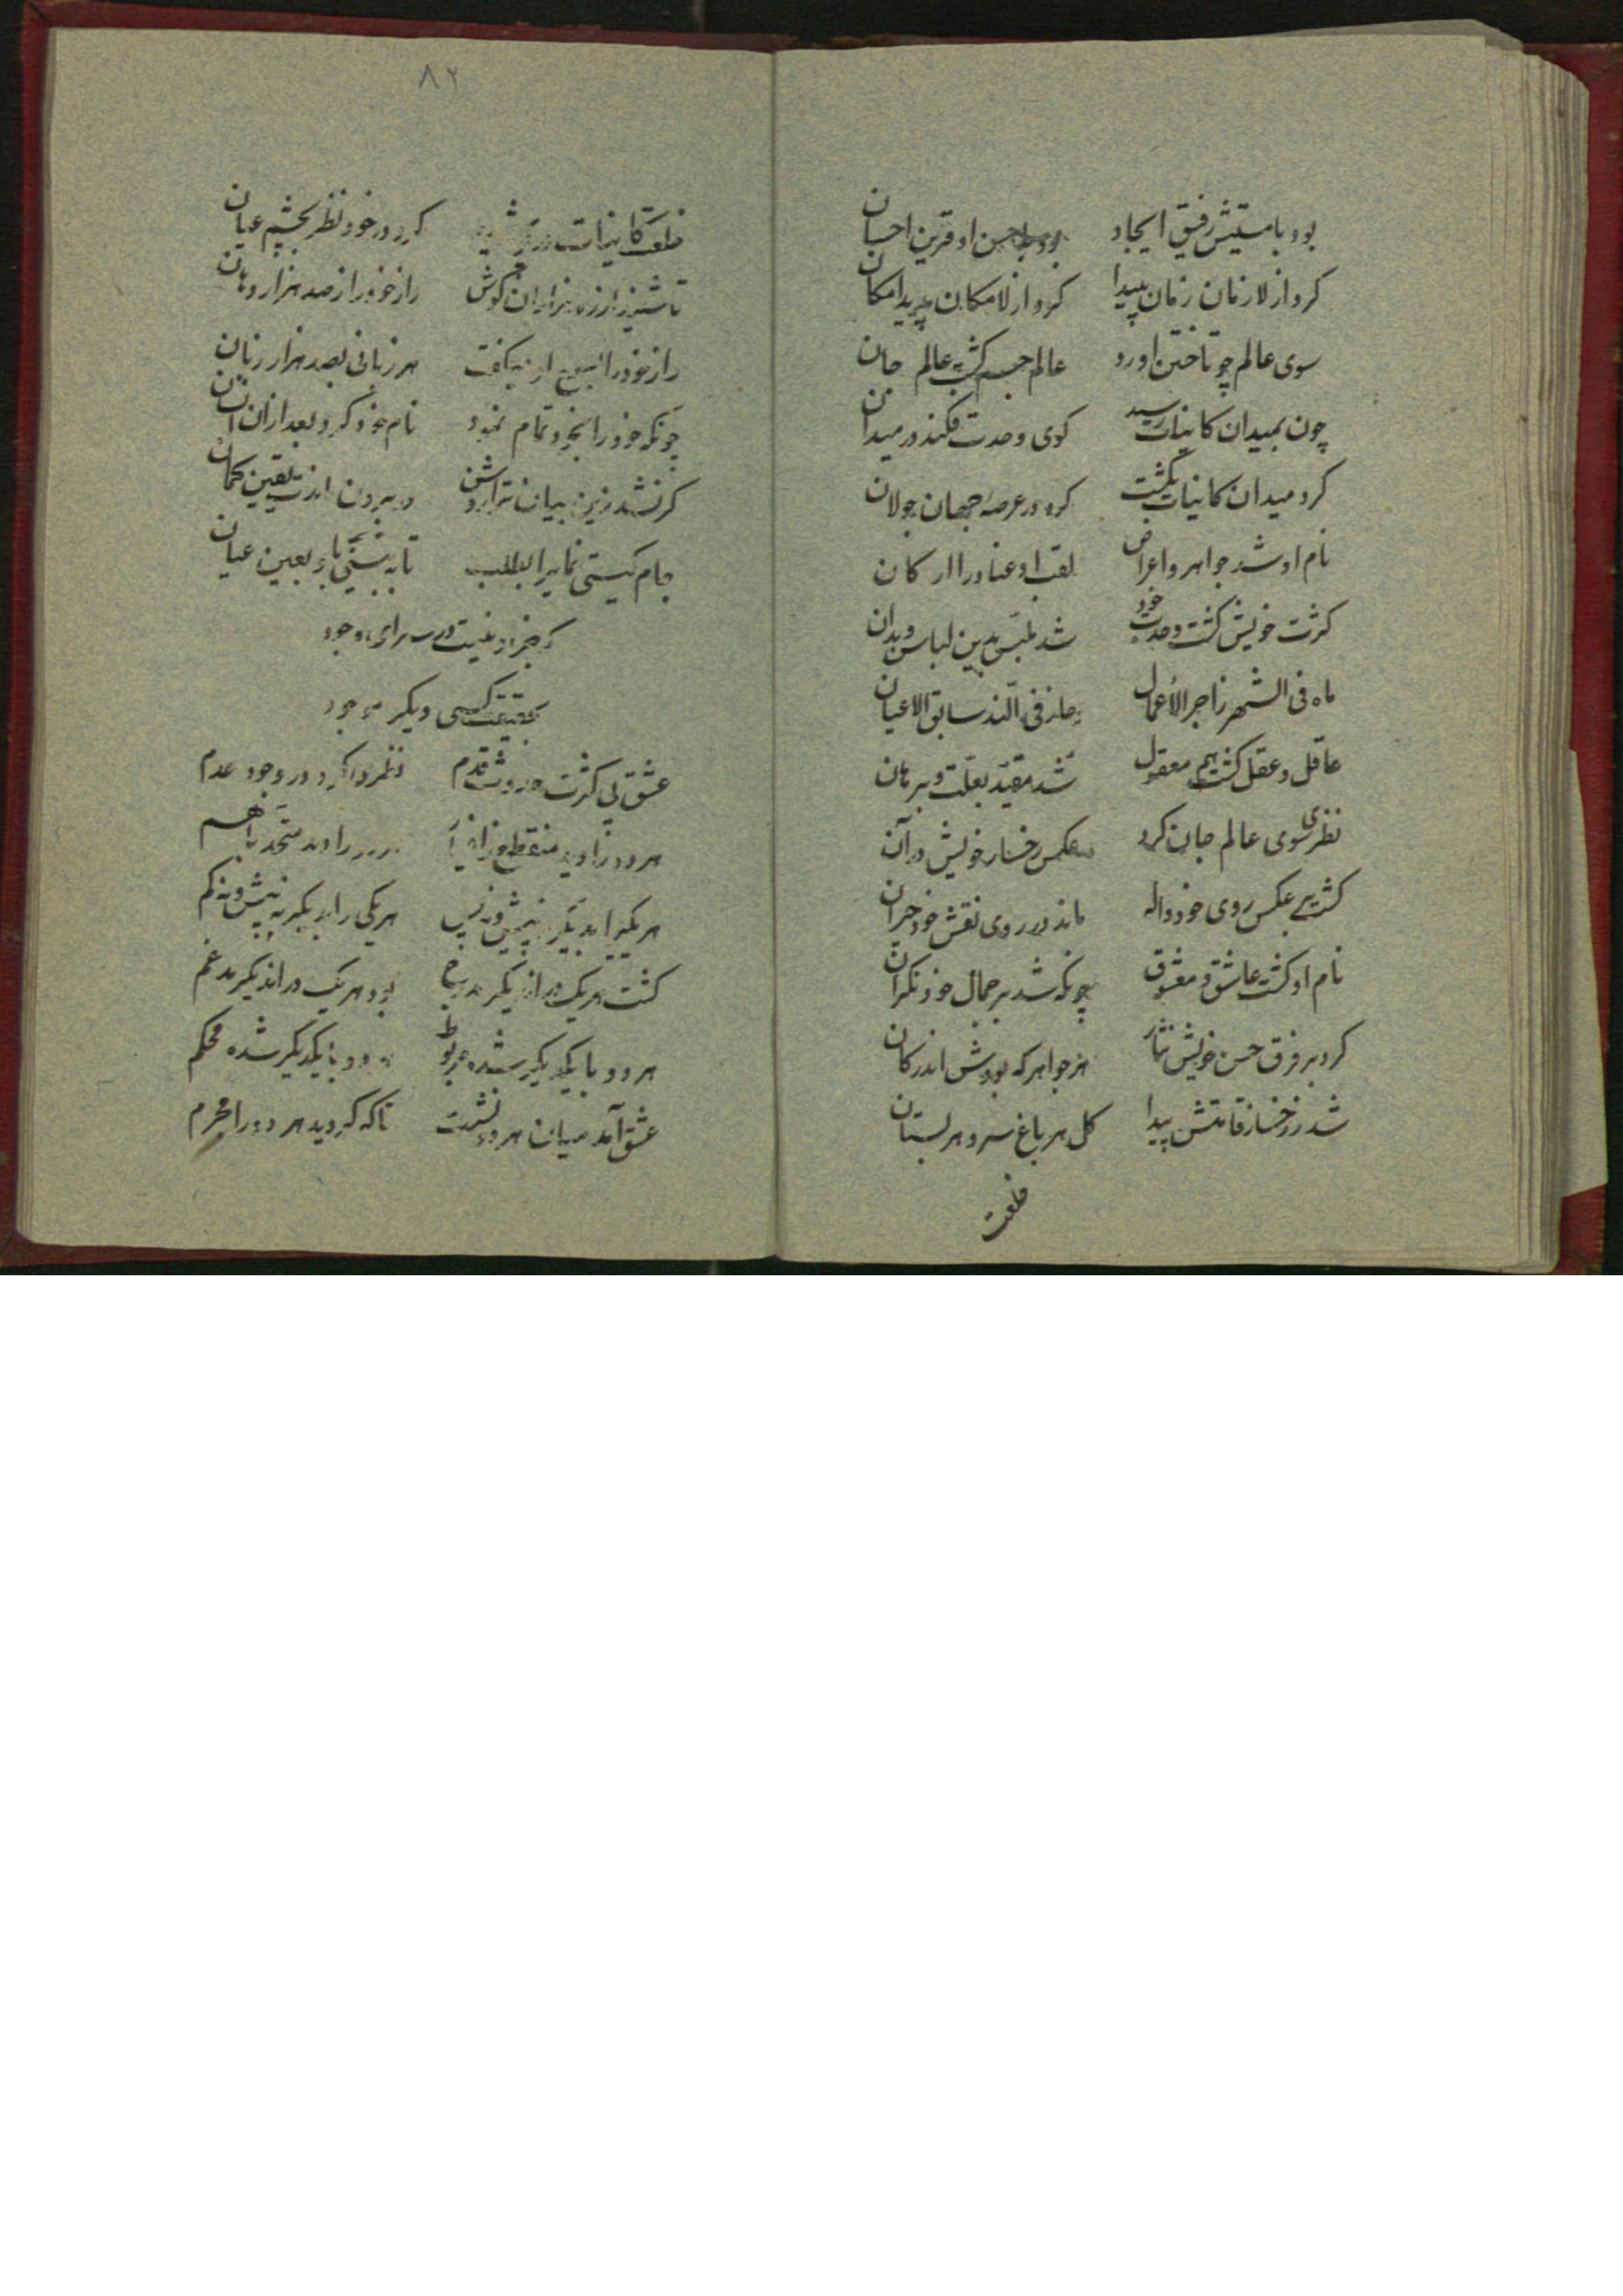 بود با هستیش رفیق ایجاد بود با حسن او قرین احسان
کرد از لازمان زمان پیدا کرد از لامکان پدید امکان
سوی عالم چو تاختن اورد عالم جسم کشت عالم جان
چون بمیدان کاینات رسید کوی وحدت فکند در میدان
کرد میدان کاینات بکشت کرد در عرصهٔ جهان جولان
نام او شد جواهر و اعراض لقب او عناصر و ارکان
کثرت خویش کشت وحدت خود شد ملبس بدین لباس و بدان
ماه فی الشهر زاجر الأعمال
عاقل و عقل کشت هم معقول شد مقید بعلت و برهان
نظری سوی عالم جان کرد دید عکس رخسار خویش در آن
کشت بر عکس روی خود واله ماند در روی نقش خود حیران
نام او کشت عاشق و معشوق چونکه شد بر جمال خود نکران
کرد بر فرق حسن خویش نثار هر جواهر که بودش اندر کان
شد ز رخسار قامتش پیدا کل هر باغ سرو هر بستان
خلعت
۸۲
خلعت کاینات در پوشید کرد در خود نظر بچشم عیان
تا شنید از هزاران کوش راز خود را از صد هزار دهان
راز خود را بسمع او میکفت هر زبانی بصد هزار زبان
چونکه خود را بخود تمام نمود نام خود کرد بعد ازان انسان
کر نشد زین بیان ترا روشن ور بیرون یقین کمان
جام کیتی نمای را بطلب تا به بینی باو بعین عیان
که جز او نیست در سرای وجود
بحقیقت کسی دیکر موجود
عشق بی کثرت حدوث و قدم نظر کرد در وجود و عدم
هر دو را دید متحد با هم
هر یکی را بدیکر نه بیش و نه کم
کشت هر یک در اندیکر مدرج بود هر یک در اندیکر مدغم
هر دو با یکدیکر شده مربوط هر دو با یکدیکر شده محکم
عشق آمد میان هر دو نشست تا که کردید هر دو را محرم